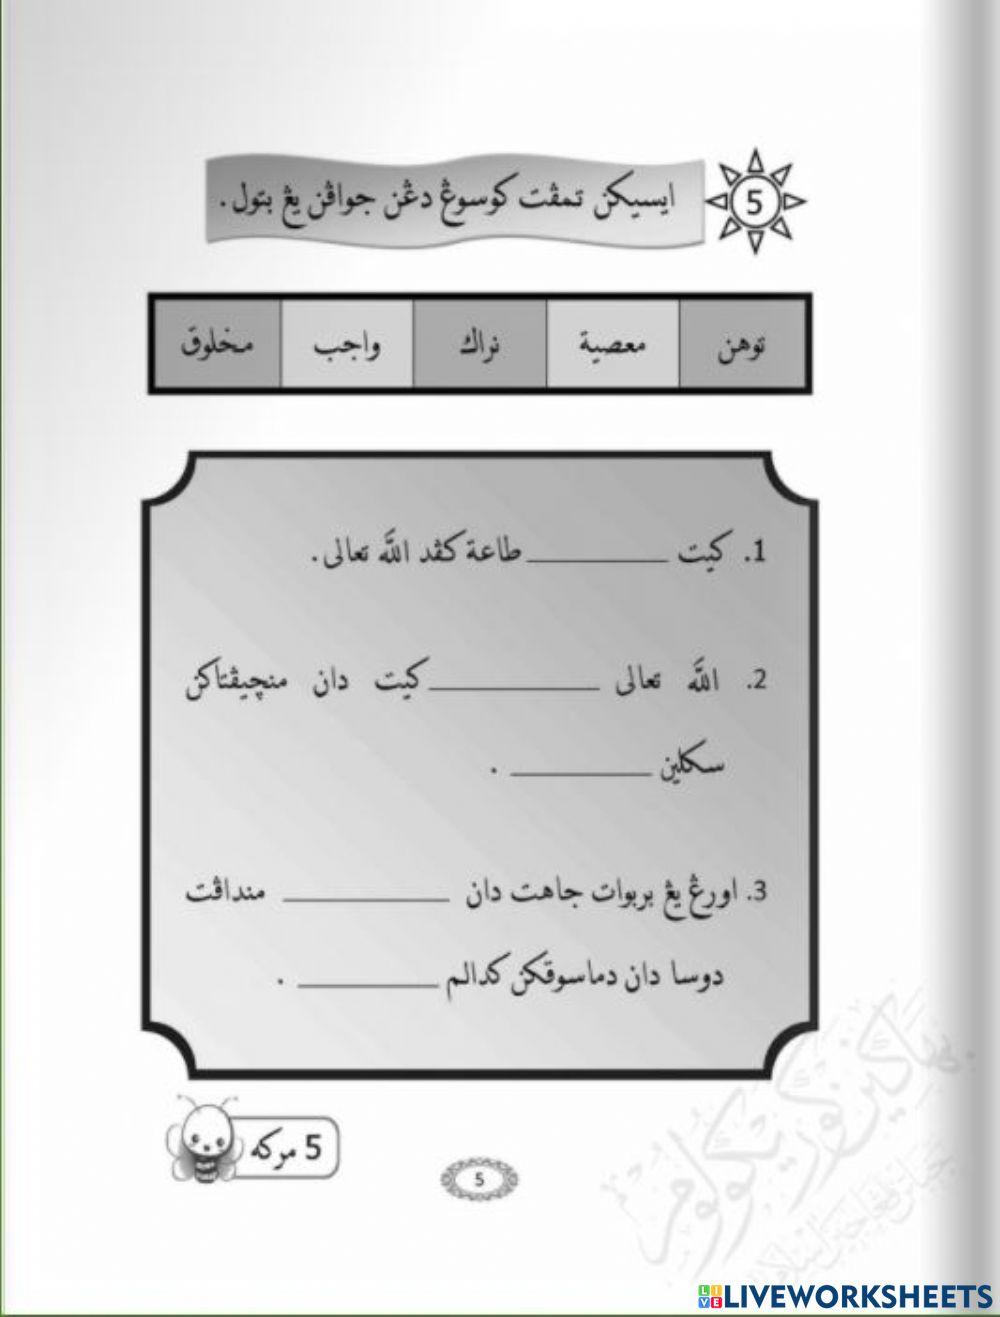 5
ايسيكن تمڤت كوسوڠ دڠن جواڤن يڠ بتول.
توهن معصية نراك واجب مخلوق
1. كيت __________ طاعة كڤد اللّٰه تعالى.
2. اللّٰه تعالى __________ كيت دان منچيڤتاكن
سكلين __________ .
3. اورڠ يڠ بربوات جاهت دان __________ منداڤت
دوسا دان دماسوقكن كدالم __________ .
5 مركه
5
LIVEWORKSHEETS